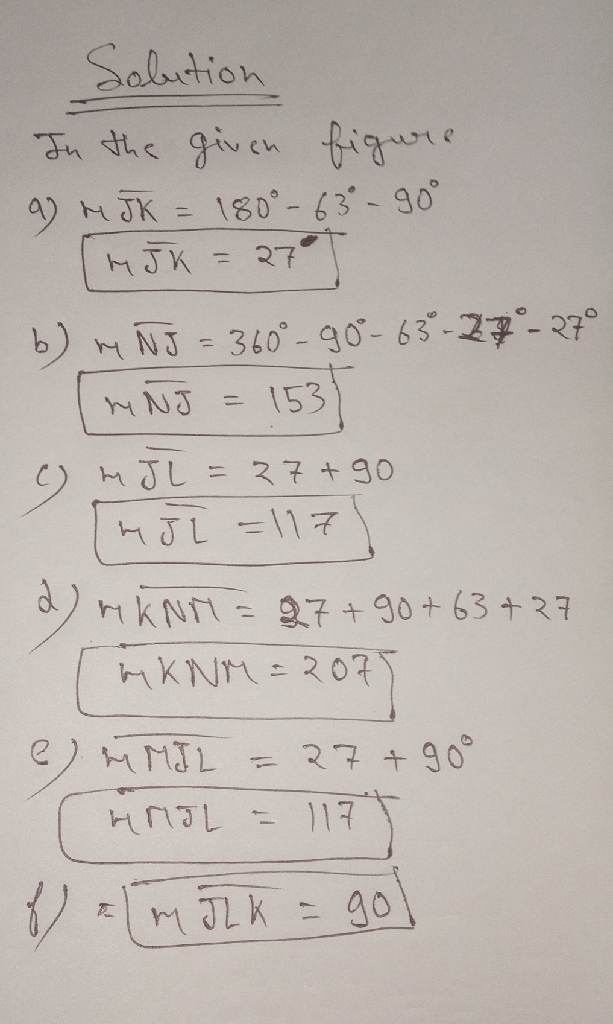 Solution
In the given figure
a) m JK = 180° - 63° - 90°
m JK = 27°
b) m NJ = 360° - 90° - 63° - 27° - 27°
m NJ = 153
c) m JL = 27 + 90
m JL = 117
d) m KNM = 27 + 90 + 63 + 27
m KNM = 207
e) m MJL = 27 + 90°
m MJL = 117
f) = m JLK = 90